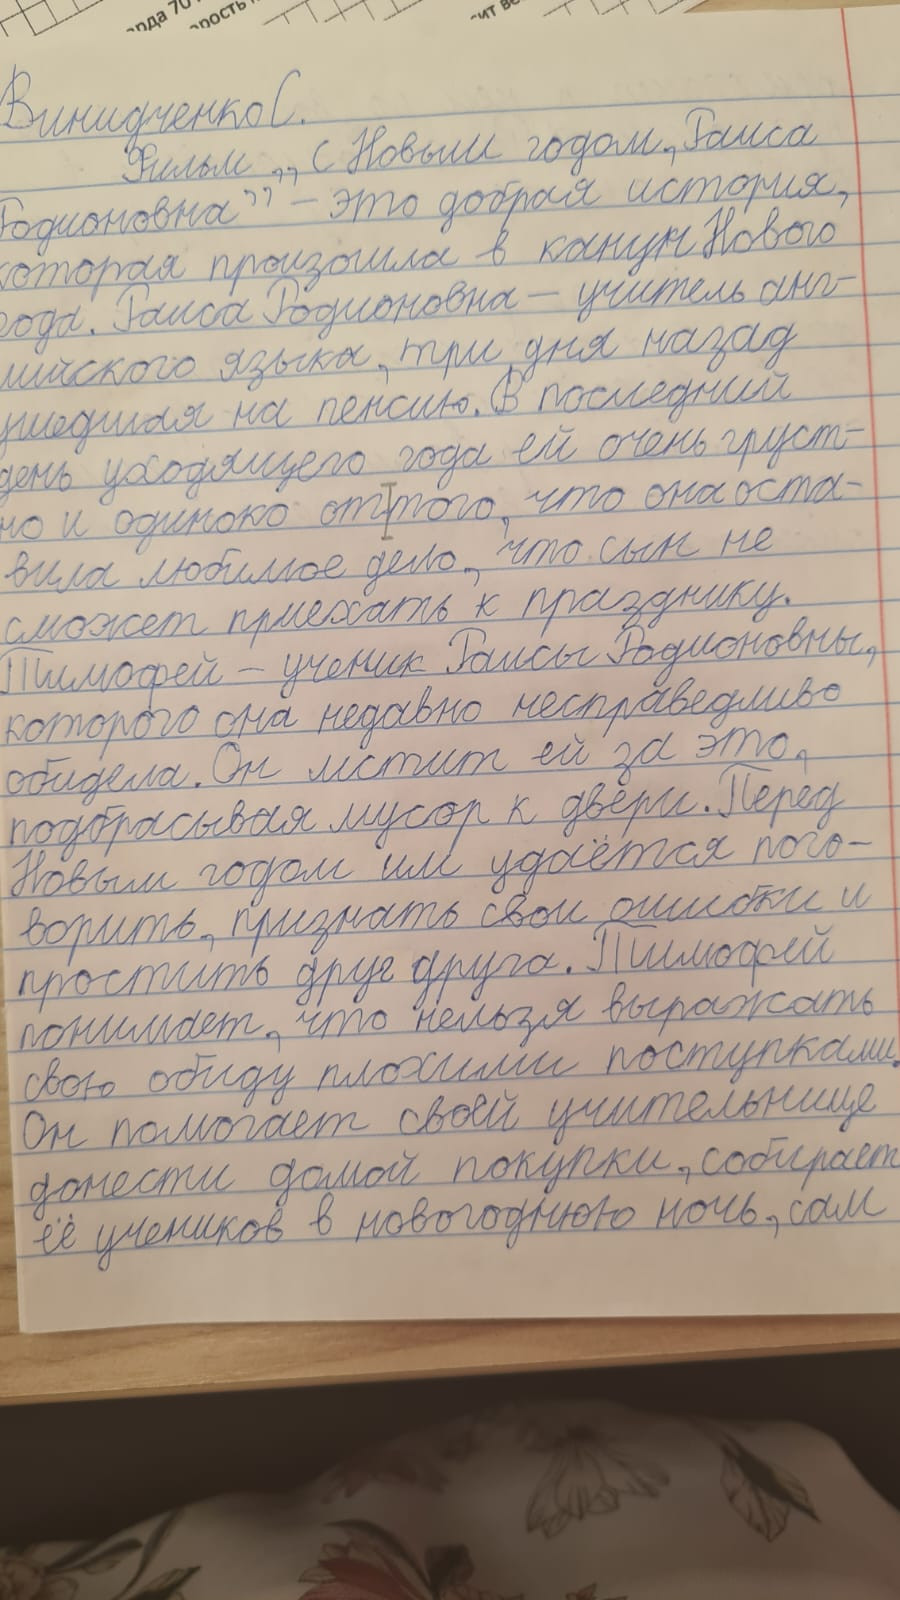 рда 70
рость
сит ве
Винидченко С.
Фильм „С Новым годом, Раиса
Родионовна” – это добрая история,
которая произошла в канун Нового
года. Раиса Родионовна – учитель анг-
лийского языка, три дня назад
ушедшая на пенсию. В последний
день уходящего года ей очень груст-
но и одиноко от того, что она оста-
вила любимое дело, что сын не
сможет приехать к празднику.
Тимофей – ученик Раисы Родионовны,
которого она недавно несправедливо
обидела. Он мстит ей за это,
подбрасывая мусор к двери. Перед
Новым годом им удаётся пого-
ворить, признать свои ошибки и
простить друг друга. Тимофей
понимает, что нельзя выражать
свою обиду плохими поступками.
Он помогает своей учительнице
донести домой покупки, собирает
её учеников в новогоднюю ночь, сам